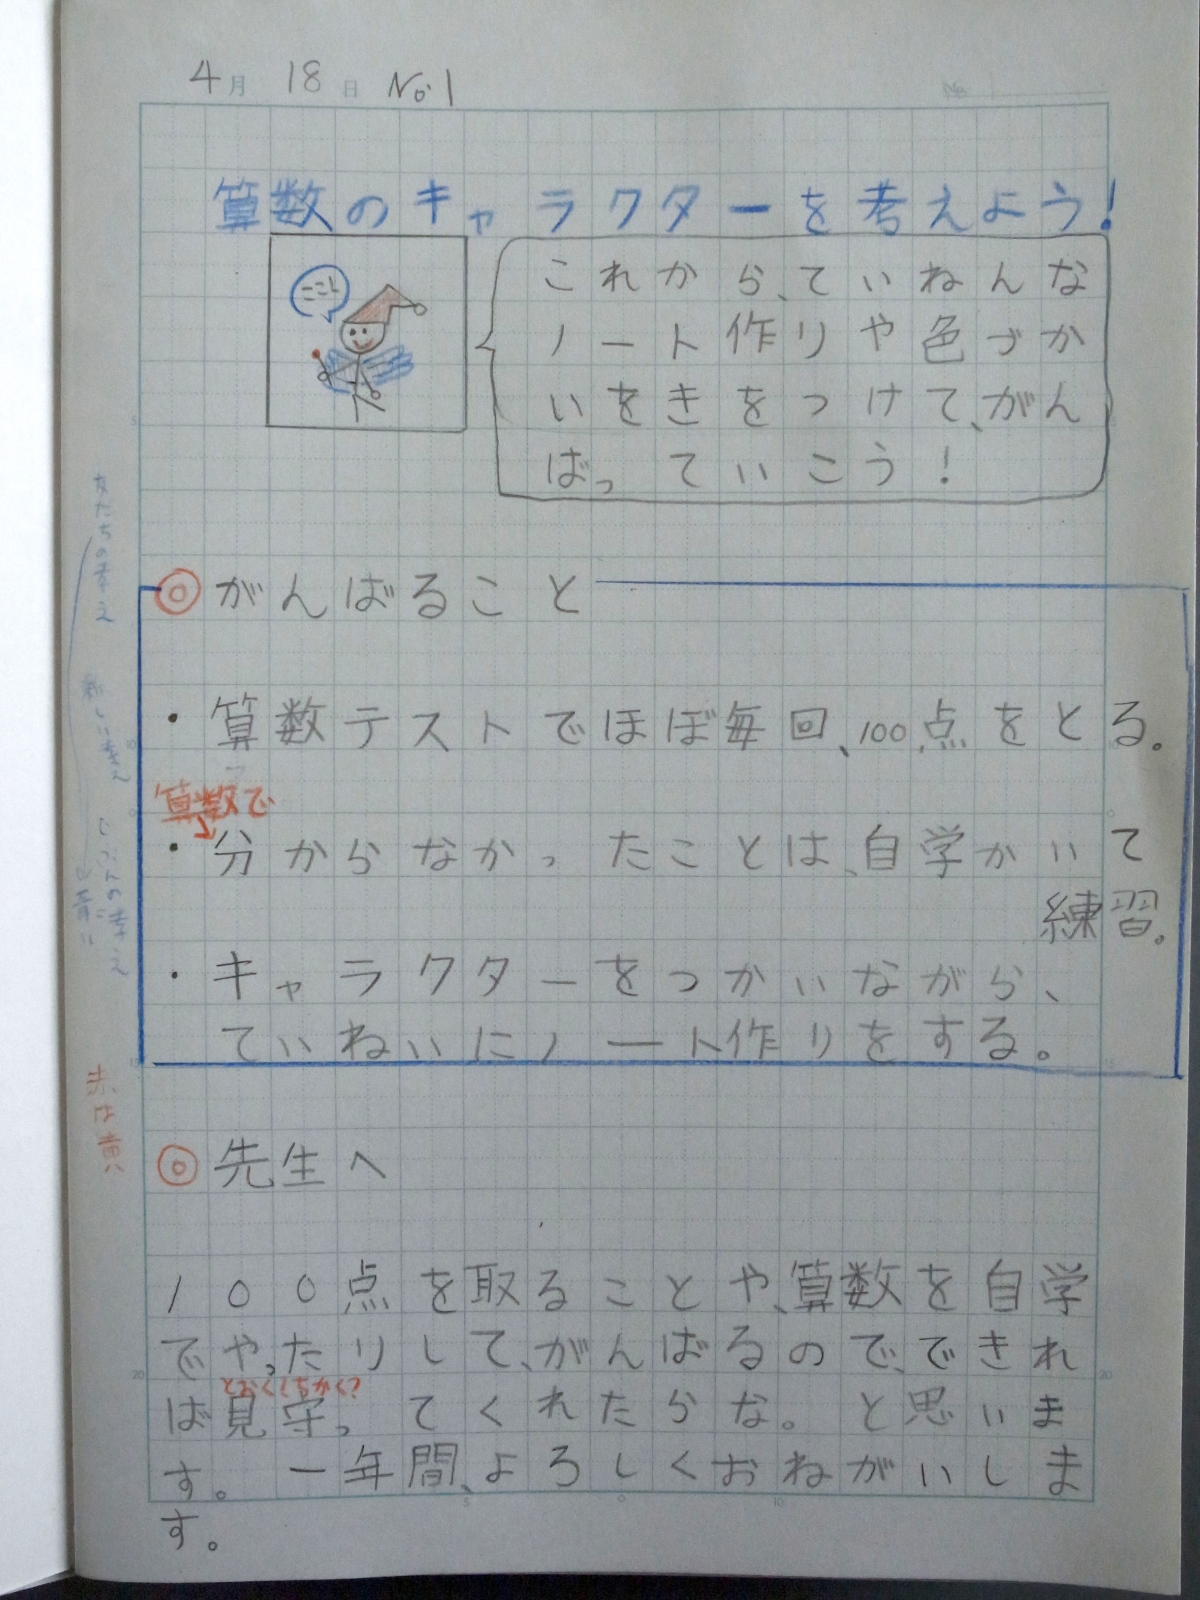 4月 18日 No.1
算数のキャラクターを考えよう!
ここし
これから、ていねんな
ノート作りや色づか
いをきをつけて、がん
ばっていこう!
◎がんばること
・算数テストでほぼ毎回、100点をとる。
算数で
・分からなかったことは、自学かいて
練習。
・キャラクターをつかいながら、
ていねいにノート作りをする。
◎先生へ
100点を取ることや、算数を自学
でやったりして、がんばるので、できれ
とおく?ちかく?
ば見守ってくれたらな。と思いま
す。一年間、よろしくおねがいしま
す。
友だちの考え
新しい考え
じぶんの考え